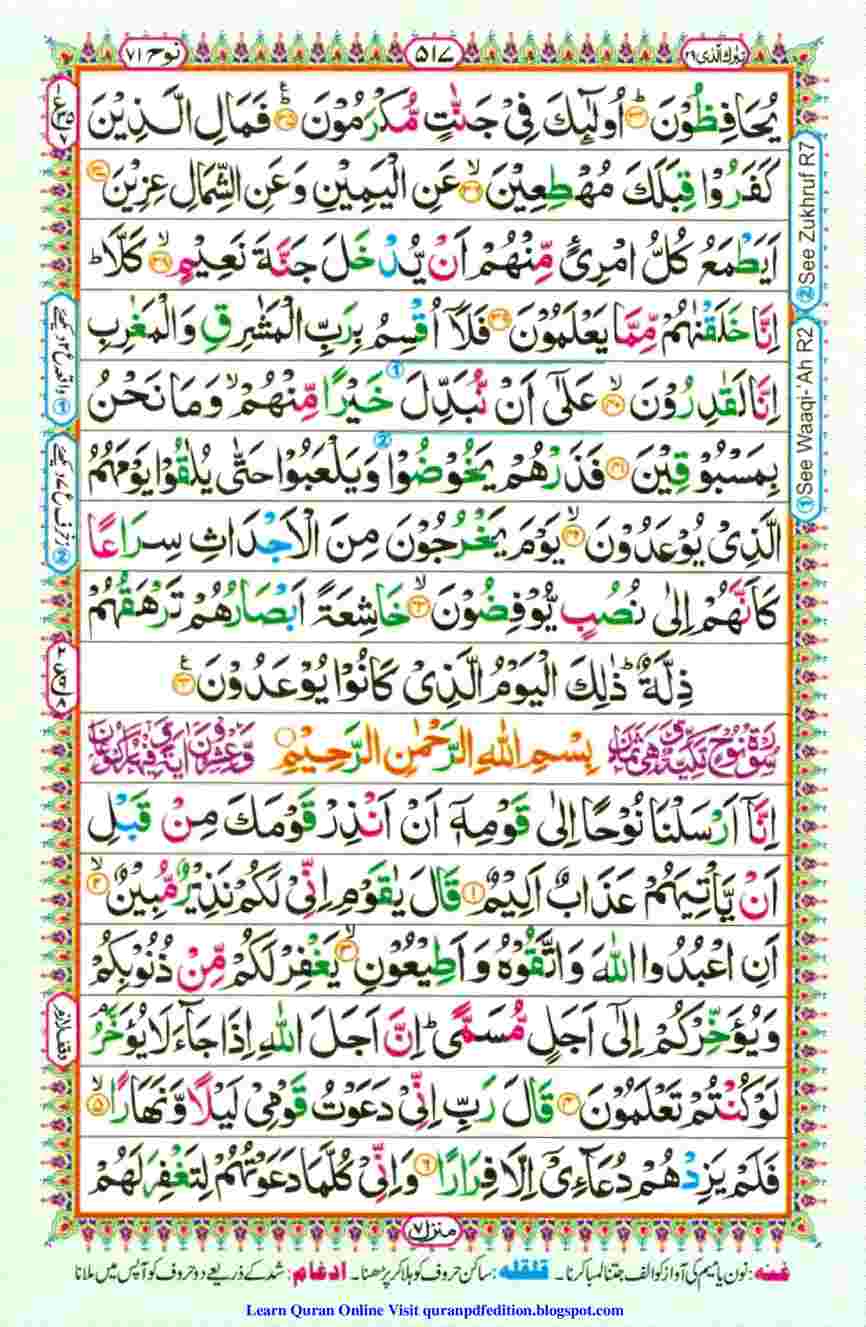 تبٰرك الّذی ٢٩
٥١٧
نوح ٧١
يُحَافِظُوْنَ ؕ﴿۳۴﴾ اُولٰٓئِكَ فِیْ جَنّٰتٍ مُّكْرَمُوْنَ ؕ﴿۳۵﴾ فَمَالِ الَّذِيْنَ
كَفَرُوْا قِبَلَكَ مُهْطِعِيْنَ ۙ﴿۳۶﴾ عَنِ الْيَمِيْنِ وَعَنِ الشِّمَالِ عِزِيْنَ ﴿۳۷﴾
اَيَطْمَعُ كُلُّ امْرِیٴٍ مِّنْهُمْ اَنْ يُّدْخَلَ جَنَّةَ نَعِيْمٍ ۙ﴿۳۸﴾ كَلَّا ؕ
اِنَّا خَلَقْنٰهُمْ مِّمَّا يَعْلَمُوْنَ ﴿۳۹﴾ فَلَآ اُقْسِمُ بِرَبِّ الْمَشٰرِقِ وَالْمَغٰرِبِ
اِنَّا لَقٰدِرُوْنَ ۙ﴿۴۰﴾ عَلٰٓی اَنْ نُّبَدِّلَ خَيْرًا مِّنْهُمْ ۙ وَمَا نَحْنُ
بِمَسْبُوْقِيْنَ ﴿۴۱﴾ فَذَرْهُمْ يَخُوْضُوْا وَيَلْعَبُوْا حَتّٰی يُلٰقُوْا يَوْمَهُمُ
الَّذِیْ يُوْعَدُوْنَ ۙ﴿۴۲﴾ يَوْمَ يَخْرُجُوْنَ مِنَ الْاَجْدَاثِ سِرَاعًا
كَاَنَّهُمْ اِلٰی نُصُبٍ يُّوْفِضُوْنَ ۙ﴿۴۳﴾ خَاشِعَةً اَبْصَارُهُمْ تَرْهَقُهُمْ
ذِلَّةٌ ؕ ذٰلِكَ الْيَوْمُ الَّذِیْ كَانُوْا يُوْعَدُوْنَ ﴿۴۴﴾
سُوْرَةُ نُوْحٍ مَّكِّيَّةٌ وَّهِیَ ثَمَانٍ
بِسْمِ اللّٰهِ الرَّحْمٰنِ الرَّحِيْمِ
وَّعِشْرُوْنَ اٰيَةً وَّفِيْهَا رُكُوْعَانِ
اِنَّآ اَرْسَلْنَا نُوْحًا اِلٰی قَوْمِهٖٓ اَنْ اَنْذِرْ قَوْمَكَ مِنْ قَبْلِ
اَنْ يَّاْتِيَهُمْ عَذَابٌ اَلِيْمٌ ﴿۱﴾ قَالَ يٰقَوْمِ اِنِّیْ لَكُمْ نَذِيْرٌ مُّبِيْنٌ ۙ﴿۲﴾
اَنِ اعْبُدُوا اللّٰهَ وَاتَّقُوْهُ وَاَطِيْعُوْنِ ۙ﴿۳﴾ يَغْفِرْ لَكُمْ مِّنْ ذُنُوْبِكُمْ
وَيُؤَخِّرْكُمْ اِلٰٓی اَجَلٍ مُّسَمًّی ؕ اِنَّ اَجَلَ اللّٰهِ اِذَا جَآءَ لَا يُؤَخَّرُ ۘ
لَوْ كُنْتُمْ تَعْلَمُوْنَ ﴿۴﴾ قَالَ رَبِّ اِنِّیْ دَعَوْتُ قَوْمِیْ لَيْلًا وَّنَهَارًا ۙ﴿۵﴾
فَلَمْ يَزِدْهُمْ دُعَآءِیْٓ اِلَّا فِرَارًا ﴿۶﴾ وَاِنِّیْ كُلَّمَا دَعَوْتُهُمْ لِتَغْفِرَ لَهُمْ
② See Zukhruf R7
① See Waaqi-'Ah R2
وقف لازم
منزل ٧
غنه: نون یا میم کی آواز کو الف جتنا لمبا کرنا۔ قلقله: ساکن حروف کو ہلا کر پڑھنا۔ ادغام: شد کے ذریعے دو حروف کو آپس میں ملانا
Learn Quran Online Visit quranpdfedition.blogspot.com